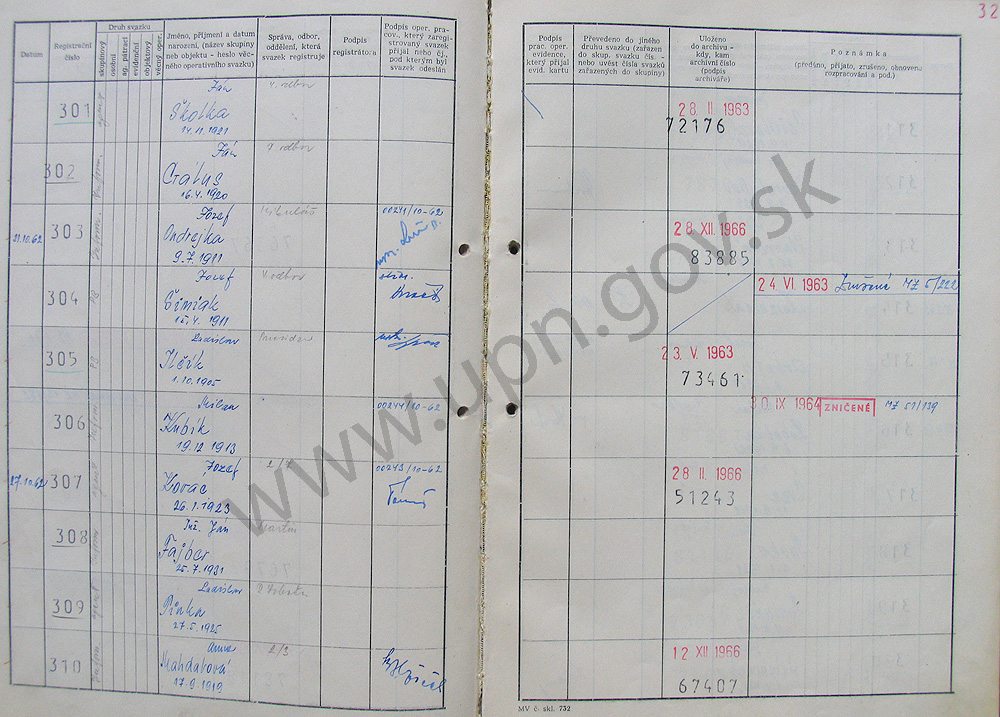 32
Datum
Registrační
číslo
Druh svazku
skupinový
osobní
ag. pátrací
evidenční
objektový
věcný oper.
Jméno, příjmení a datum
narození, (název skupiny
neb objektu - heslo věc-
ného operativního svazku)
Správa, odbor,
oddělení, která
svazek registruje
Podpis
registrátora
Podpis oper. pra-
cov., který zaregi-
strovaný svazek
přijal nebo čj.,
pod kterým byl
svazek odeslán
Podpis
prac. oper.
evidence,
který přijal
evid. kartu
Převedeno do jiného
druhu svazku (zařazen
do skup. svazku čís. -
nebo uvést čísla svazků
zařazených do skupiny)
Uloženo
do archivu -
kdy,
kam
archivní číslo
(podpis
archiváře)
Poznámka
(předáno, přijato, zrušeno, obnoveno
rozpracování a pod.)
301
Ján
Školka
14.11.1921
odbor
28. II. 1963
72176
302
Ján
16.4.1920
odbor
21.10.62
303
Jozef
Ondrejka
9.7.1911
00241/10-62
28. XII. 1966
83885
304
Jozef
Šimiak
1911
odbor
24. VI. 1963
Zničené MZ 5/222
305
Ladislav
Ilčík
1.10.1905
23. V. 1963
73461
306
Milan
Kubík
19.12.1913
00244/10-62
30. IX 1964
ZNIČENÉ
MZ 51/139
27.10.62
307
Jozef
Kovac
26.1.1923
2/2
00243/10-62
28 II. 1966
51243
308
Inž. Ján
Fajbcr
25.7.1931
Martin
309
Ladislav
27.5.1925
310
Anna
Mahdaková
17.9.1919
2/3
12 XII 1966
67407
MV č. skl. 752
www.upn.gov.sk